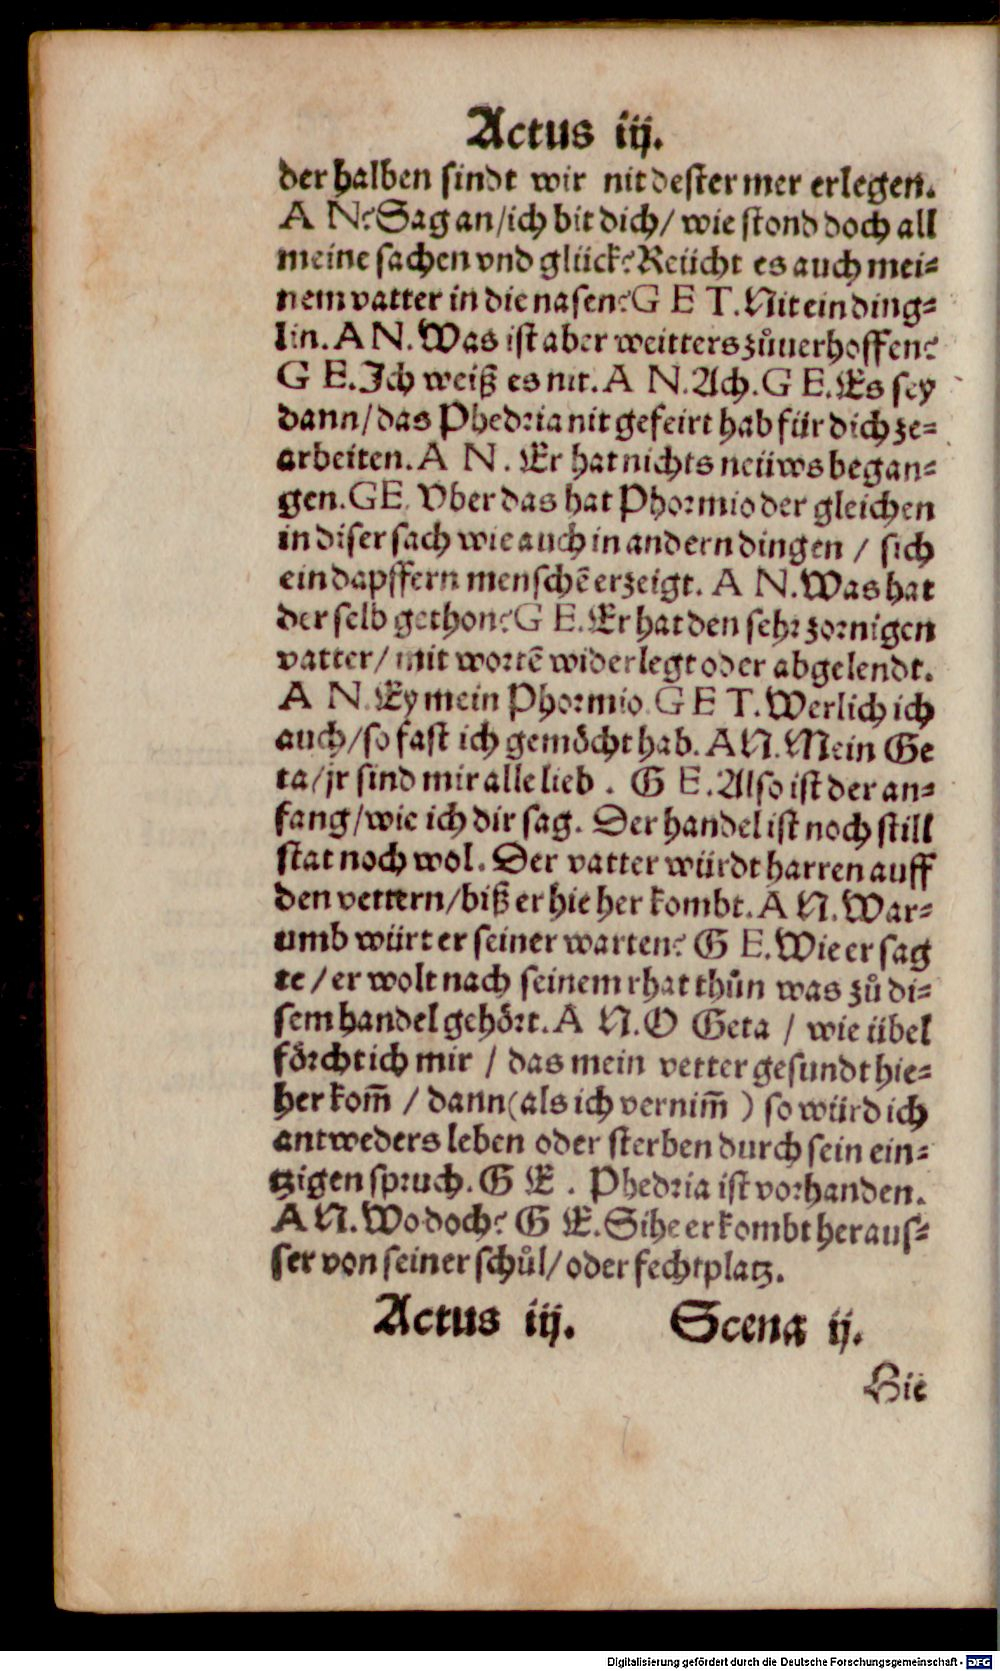 Actus iij.
derhalben sindt wir nit dester mer erlegen.
A N? Sag an/ich bit dich/ wie stond doch all
meine sachen vnd glück? Reücht es auch mei⸗
nem vatter in die nasen? G E T. Nit ein ding⸗
lin. A N. Was ist aber weitters zůuerhoffen?
G E. Ich weiß es nit. A N. Ach. G E. Es sey
dann/das Phedria nit gefeirt hab für dich ze⸗
arbeiten. A N. Er hat nichts neüws began⸗
gen. GE. Vber das hat Phormio der gleichen
in diser sach wie auch in andern dingen / sich
ein dapffern menschē erzeigt. A N. Was hat
der selb gethon? G E. Er hat den sehr zornigen
vatter/ mit wortē widerlegt oder abgelendt.
A N. Ey mein Phormio. G E T. Werlich ich
auch/so fast ich gemöcht hab. A N. Mein Ge
ta/jr sind mir alle lieb . G E. Also ist der an⸗
fang/wie ich dir sag. Der handel ist noch still
stat noch wol. Der vatter würdt harren auff
den vettern/biß er hie her kombt. A N. War⸗
umb würt er seiner warten? G E. Wie er sag
te / er wolt nach seinem rhat thůn was zů di⸗
sem handel gehört. A N. O Geta / wie übel
förcht ich mir / das mein vetter gesundt hie⸗
her kom̄ / dann (als ich vernim̄ ) so würd ich
antweders leben oder sterben durch sein ein⸗
tzigen spruch. G E . Phedria ist vorhanden.
A N. Wo doch? G E. Sihe er kombt heraus⸗
ser von seiner schůl/ oder fechtplatz.
Actus iij. Scena ij.
Hie
Digitalisierung gefördert durch die Deutsche Forschungsgemeinschaft - DFG